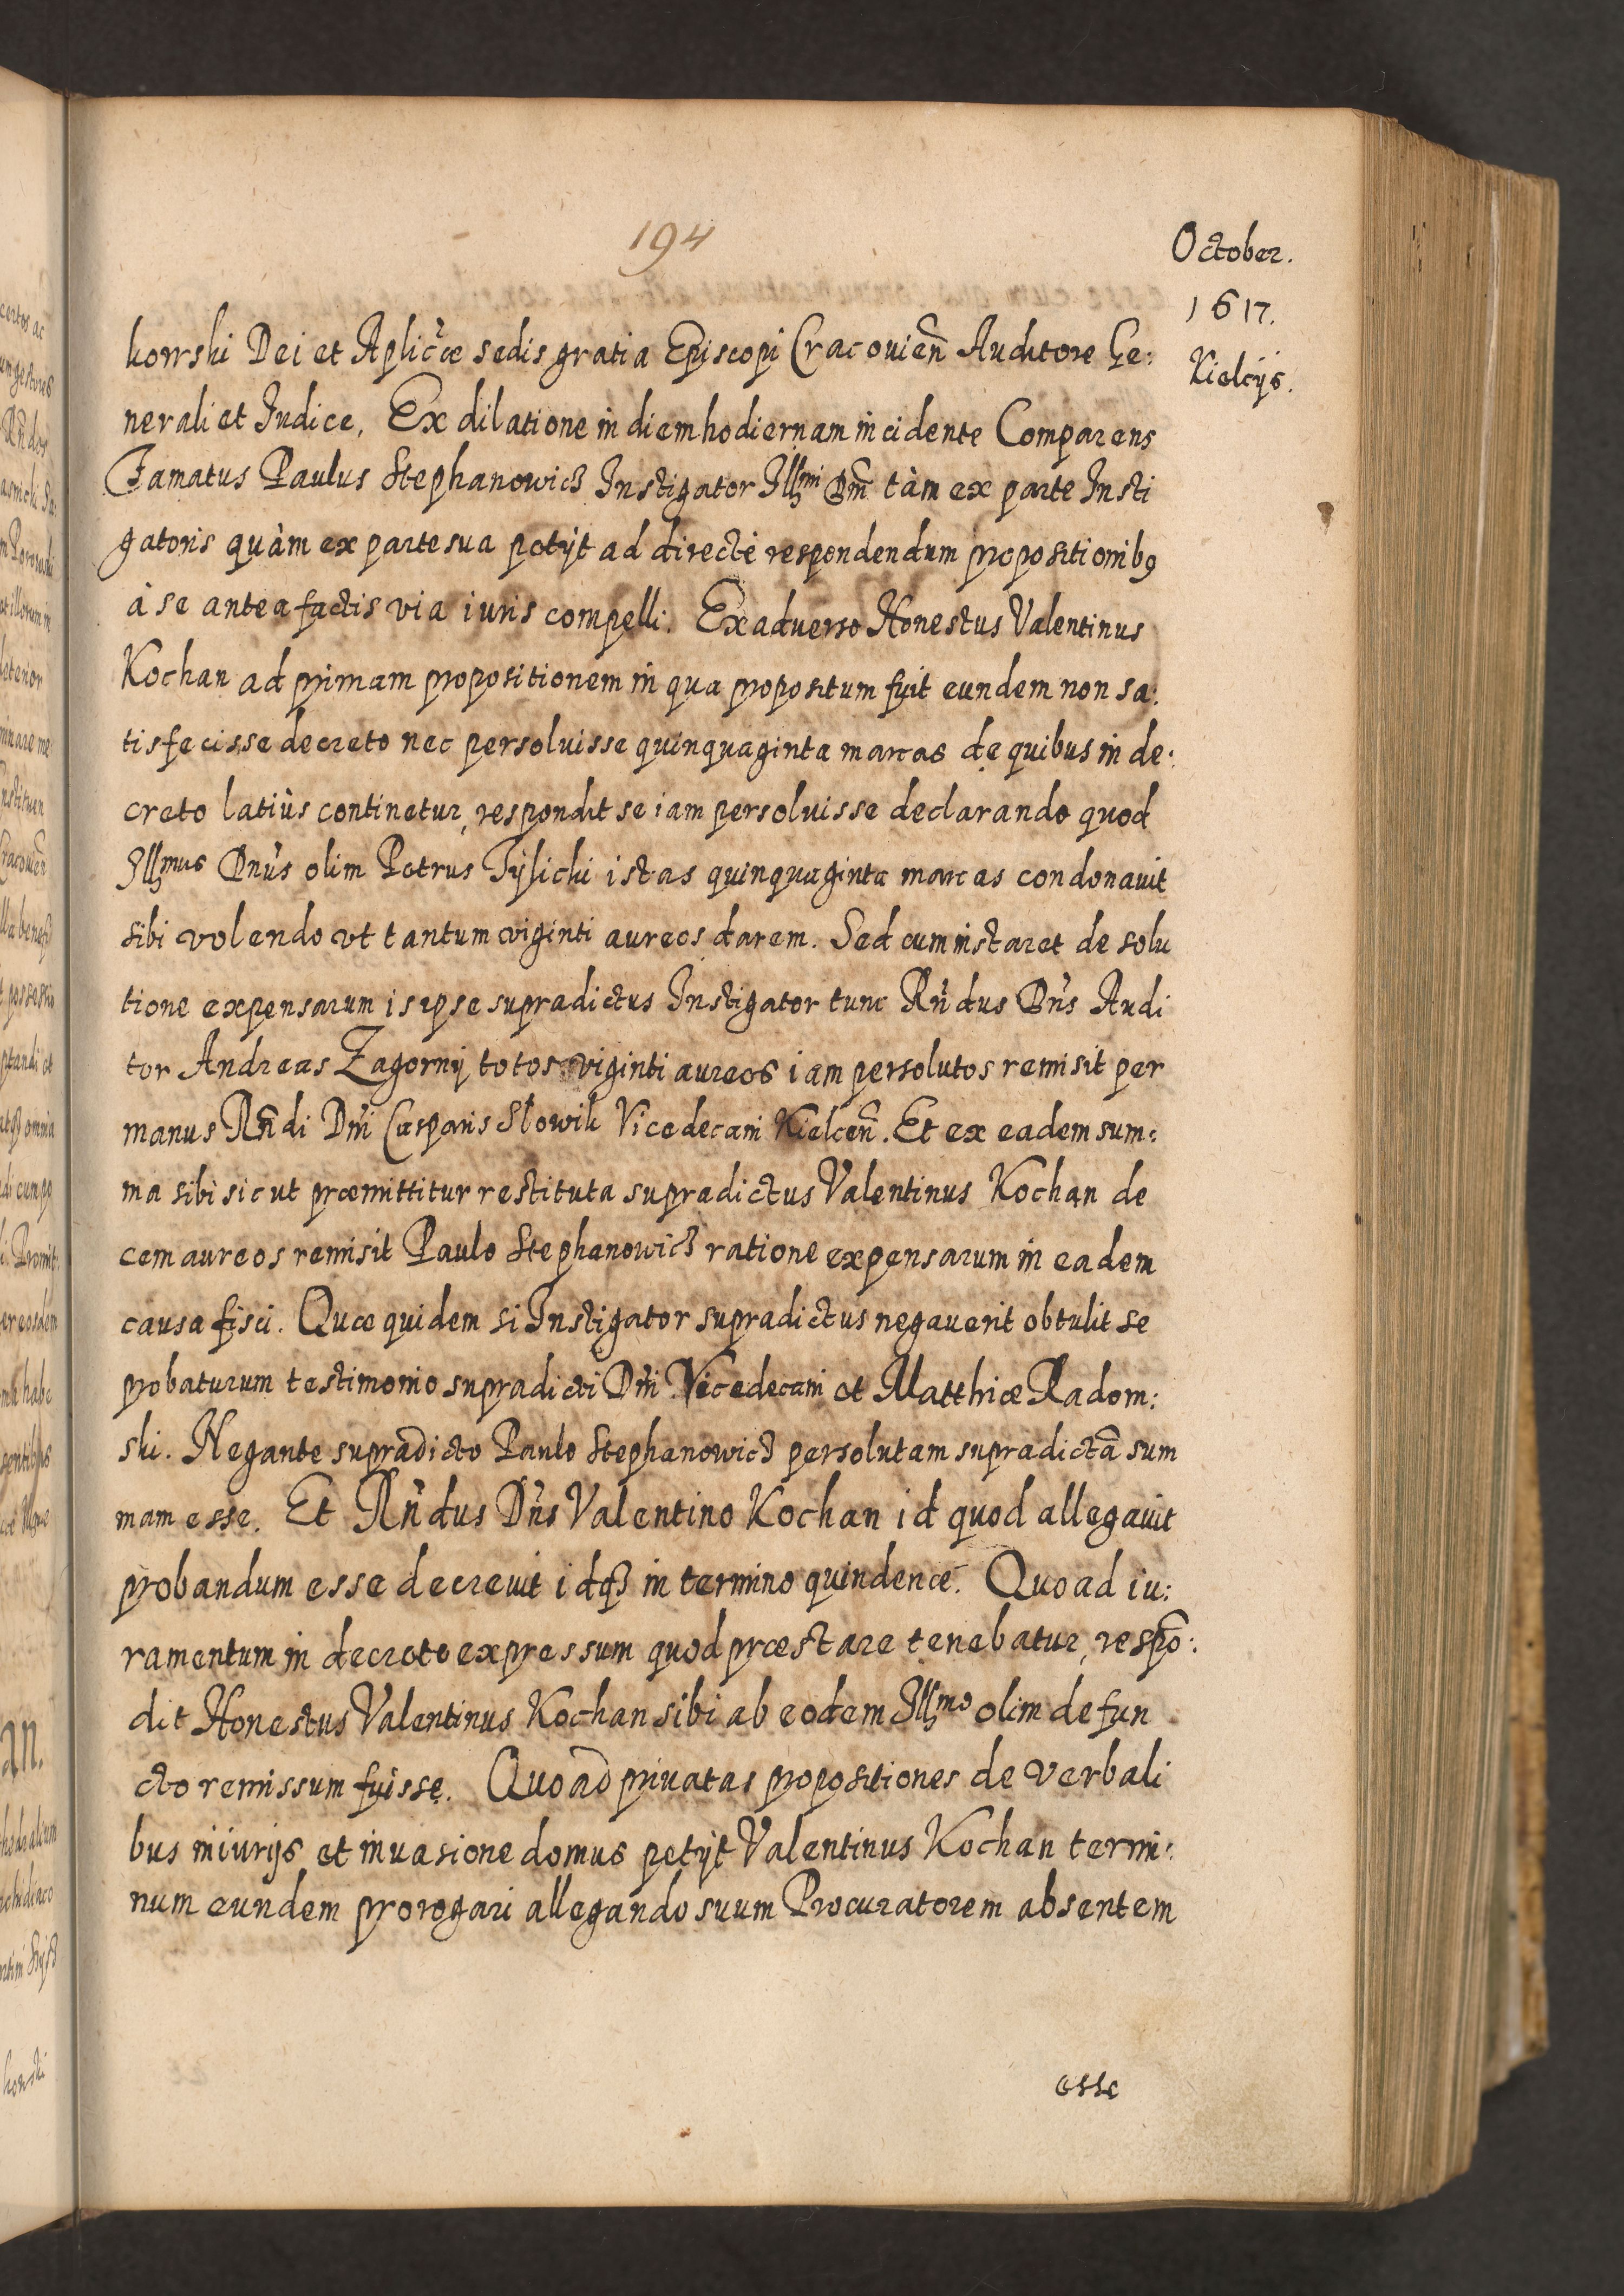 194
October.
1617.
Kielcijs.
kowski Dei et Aplicæ sedis gratia Episcopi Cracouien̄ Auditore Ge:
nerali et Iudice. Ex dilatione in diem hodiernam incidente Comparens
Famatus Paulus Stephanowicz Instigator Illmi Dni tàm ex parte Insti
gatoris quàm ex parte sua petijt ad directè respondendum propositionibꝰ
à se antea factis via iuris compelli. Ex aduerso Honestus Valentinus
Kochan ad primam propositionem in qua propositum fuit eundem non sa:
tisfecisse decreto nec persoluisse quinquaginta marcas de quibus in de:
creto latiùs continetur, respondit se iam persoluisse declarando quod
Illmus Dnus olim Petrus Tÿlicki istas quinquaginta marcas condonauit
sibi volendo vt tantum viginti aureos darem. Sed cum instaret de solu
tione expensarum is ipse supradictus Instigator tunc Rndus Dns Audi
tor Andreas Zagornij totos viginti aureos iam persolutos remisit per
manus Rndi Dni Casparis Słowik Vicedecani Kielcen̄. Et ex eadem sum:
ma sibi sicut præmittitur restituta supradictus Valentinus Kochan de
cem aureos remisit Paulo Stephanowicz ratione expensarum in eadem
causa fisci. Quæ quidem si Instigator supradictus negauerit obtulit se
probaturum testimonio supradicti Dni Vicedecani et Matthiæ Radom:
ski. Negante supradicto Paulo Stephanowicz persolutam supradictā sum
mam esse. Et Rndus Dns Valentino Kochan id quod allegauit
probandum esse decreuit idqꝫ in termino quindenæ. Quoad iu:
ramentum in decreto expressum quod præstare tenebatur, respō:
dit Honestus Valentinus Kochan sibi ab eodem Illmo olim defun
cto remissum fuisse. Quoad priuatas propositiones de verbali
bus iniurijs et inuasione domus petijt Valentinus Kochan termi:
num eundem prorogari allegando suum Procuratorem absentem
esse